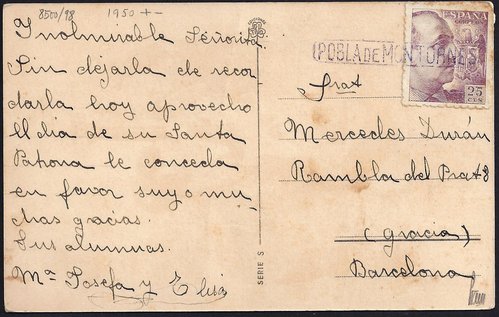 8500/98
1950 +-
Inolmurable Señorita
Sin dejarla de recor
darla hoy aprovecho
el dia de su Santa
Patrona le conceda
en favor suyo mu
chas gracias.
Sus alumnas.
Mª Josefa y Elisa
SERIE S
(POBLA DE MONTORNÉS
ESPAÑA
25
CTS
Srat
Mercedes Durán
Rambla del Prat 8
(Gracia)
Barcelona